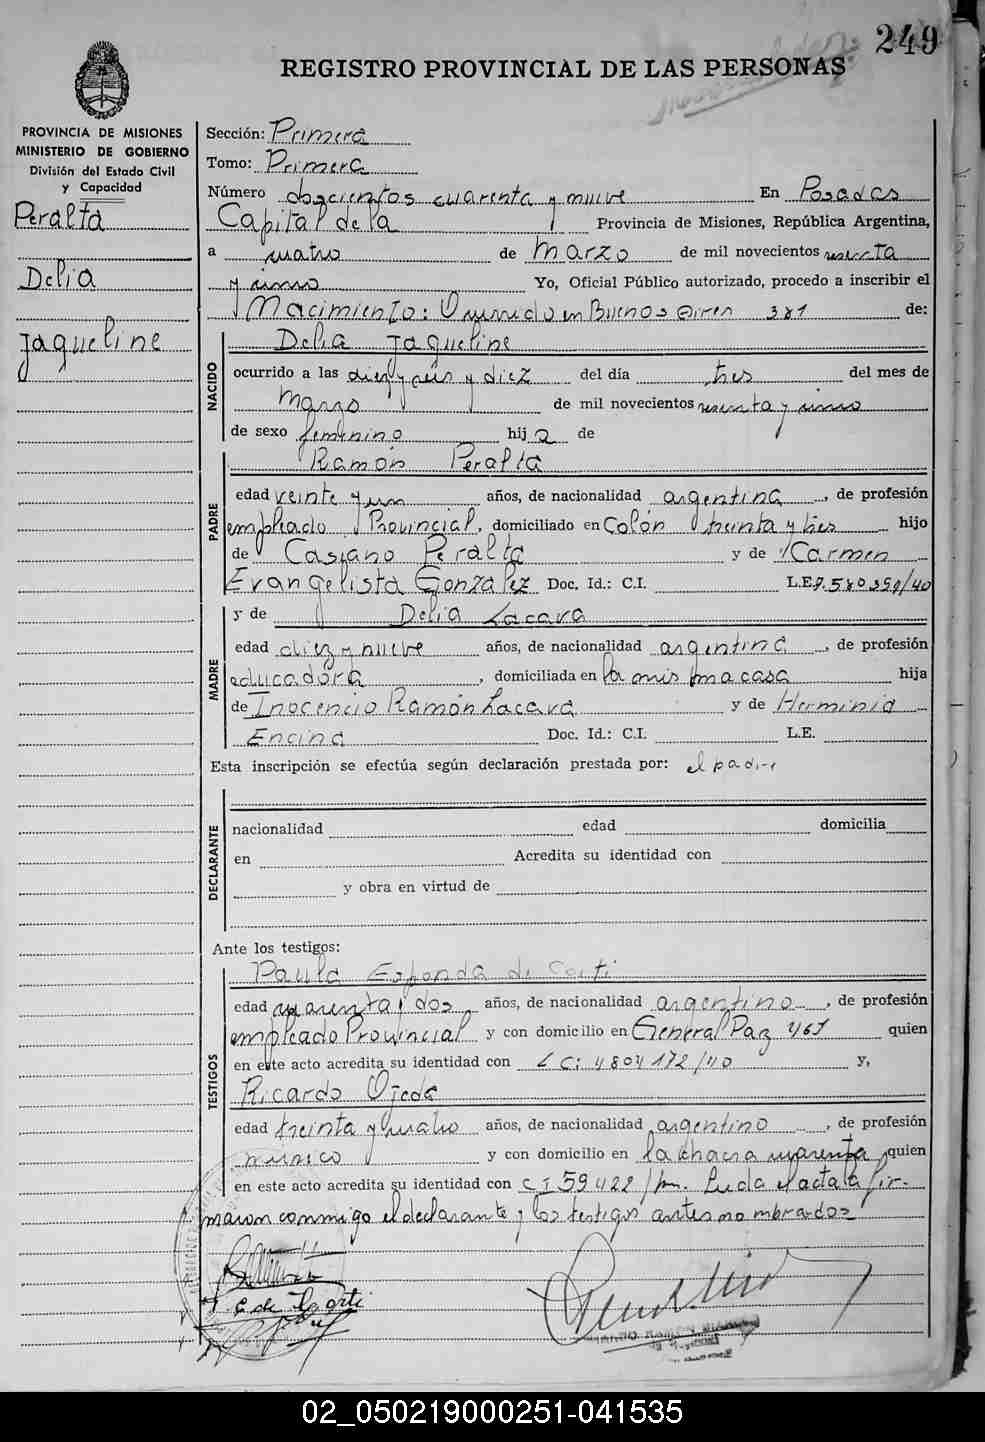 249
REGISTRO PROVINCIAL DE LAS PERSONAS
PROVINCIA DE MISIONES
MINISTERIO DE GOBIERNO
División del Estado Civil
y Capacidad
Peralta
Delia
Jaqueline
Sección: Primera
Tomo: Primera
Número doscientos cuarenta y nueve En Posadas
Capital de la Provincia de Misiones, República Argentina,
a cuatro de Marzo de mil novecientos sesenta
y cinco Yo, Oficial Público autorizado, procedo a inscribir el
Nacimiento: Ocurrido en Buenos Aires 381 de:
NACIDO
Delia Jaqueline
ocurrido a las diez y seis y diez del día tres del mes de
Marzo de mil novecientos sesenta y cinco
de sexo femenino hija de
PADRE
Ramón Peralta
edad veinte y un años, de nacionalidad argentina, de profesión
empleado Provincial, domiciliado en Colón treinta y tres hijo
de Casiano Peralta y de Carmen
Evangelista Gonzalez Doc. Id.: C.I. L.E. 7.580.359/40
MADRE
y de Delia Lacava
edad diez y nueve años, de nacionalidad argentina, de profesión
educadora, domiciliada en la misma casa hija
de Inocencio Ramón Lacava y de Herminia
Encina Doc. Id.: C.I. L.E.
Esta inscripción se efectúa según declaración prestada por: el padre
DECLARANTE
nacionalidad edad domicilia
en Acredita su identidad con
y obra en virtud de
Ante los testigos:
TESTIGOS
Paula Esponda de Corti
edad cuarenta y dos años, de nacionalidad argentino, de profesión
empleado Provincial y con domicilio en General Paz 461 quien
en este acto acredita su identidad con L C: 4804172/40 y,
Ricardo Ojeda
edad treinta y cuatro años, de nacionalidad argentino, de profesión
músico y con domicilio en la chacra cuarenta quien
en este acto acredita su identidad con C I 59422/m. Leida el acta la fir-
maron conmigo el declarante y los testigos antes nombrados
P. E. de Corti
02_050219000251-041535